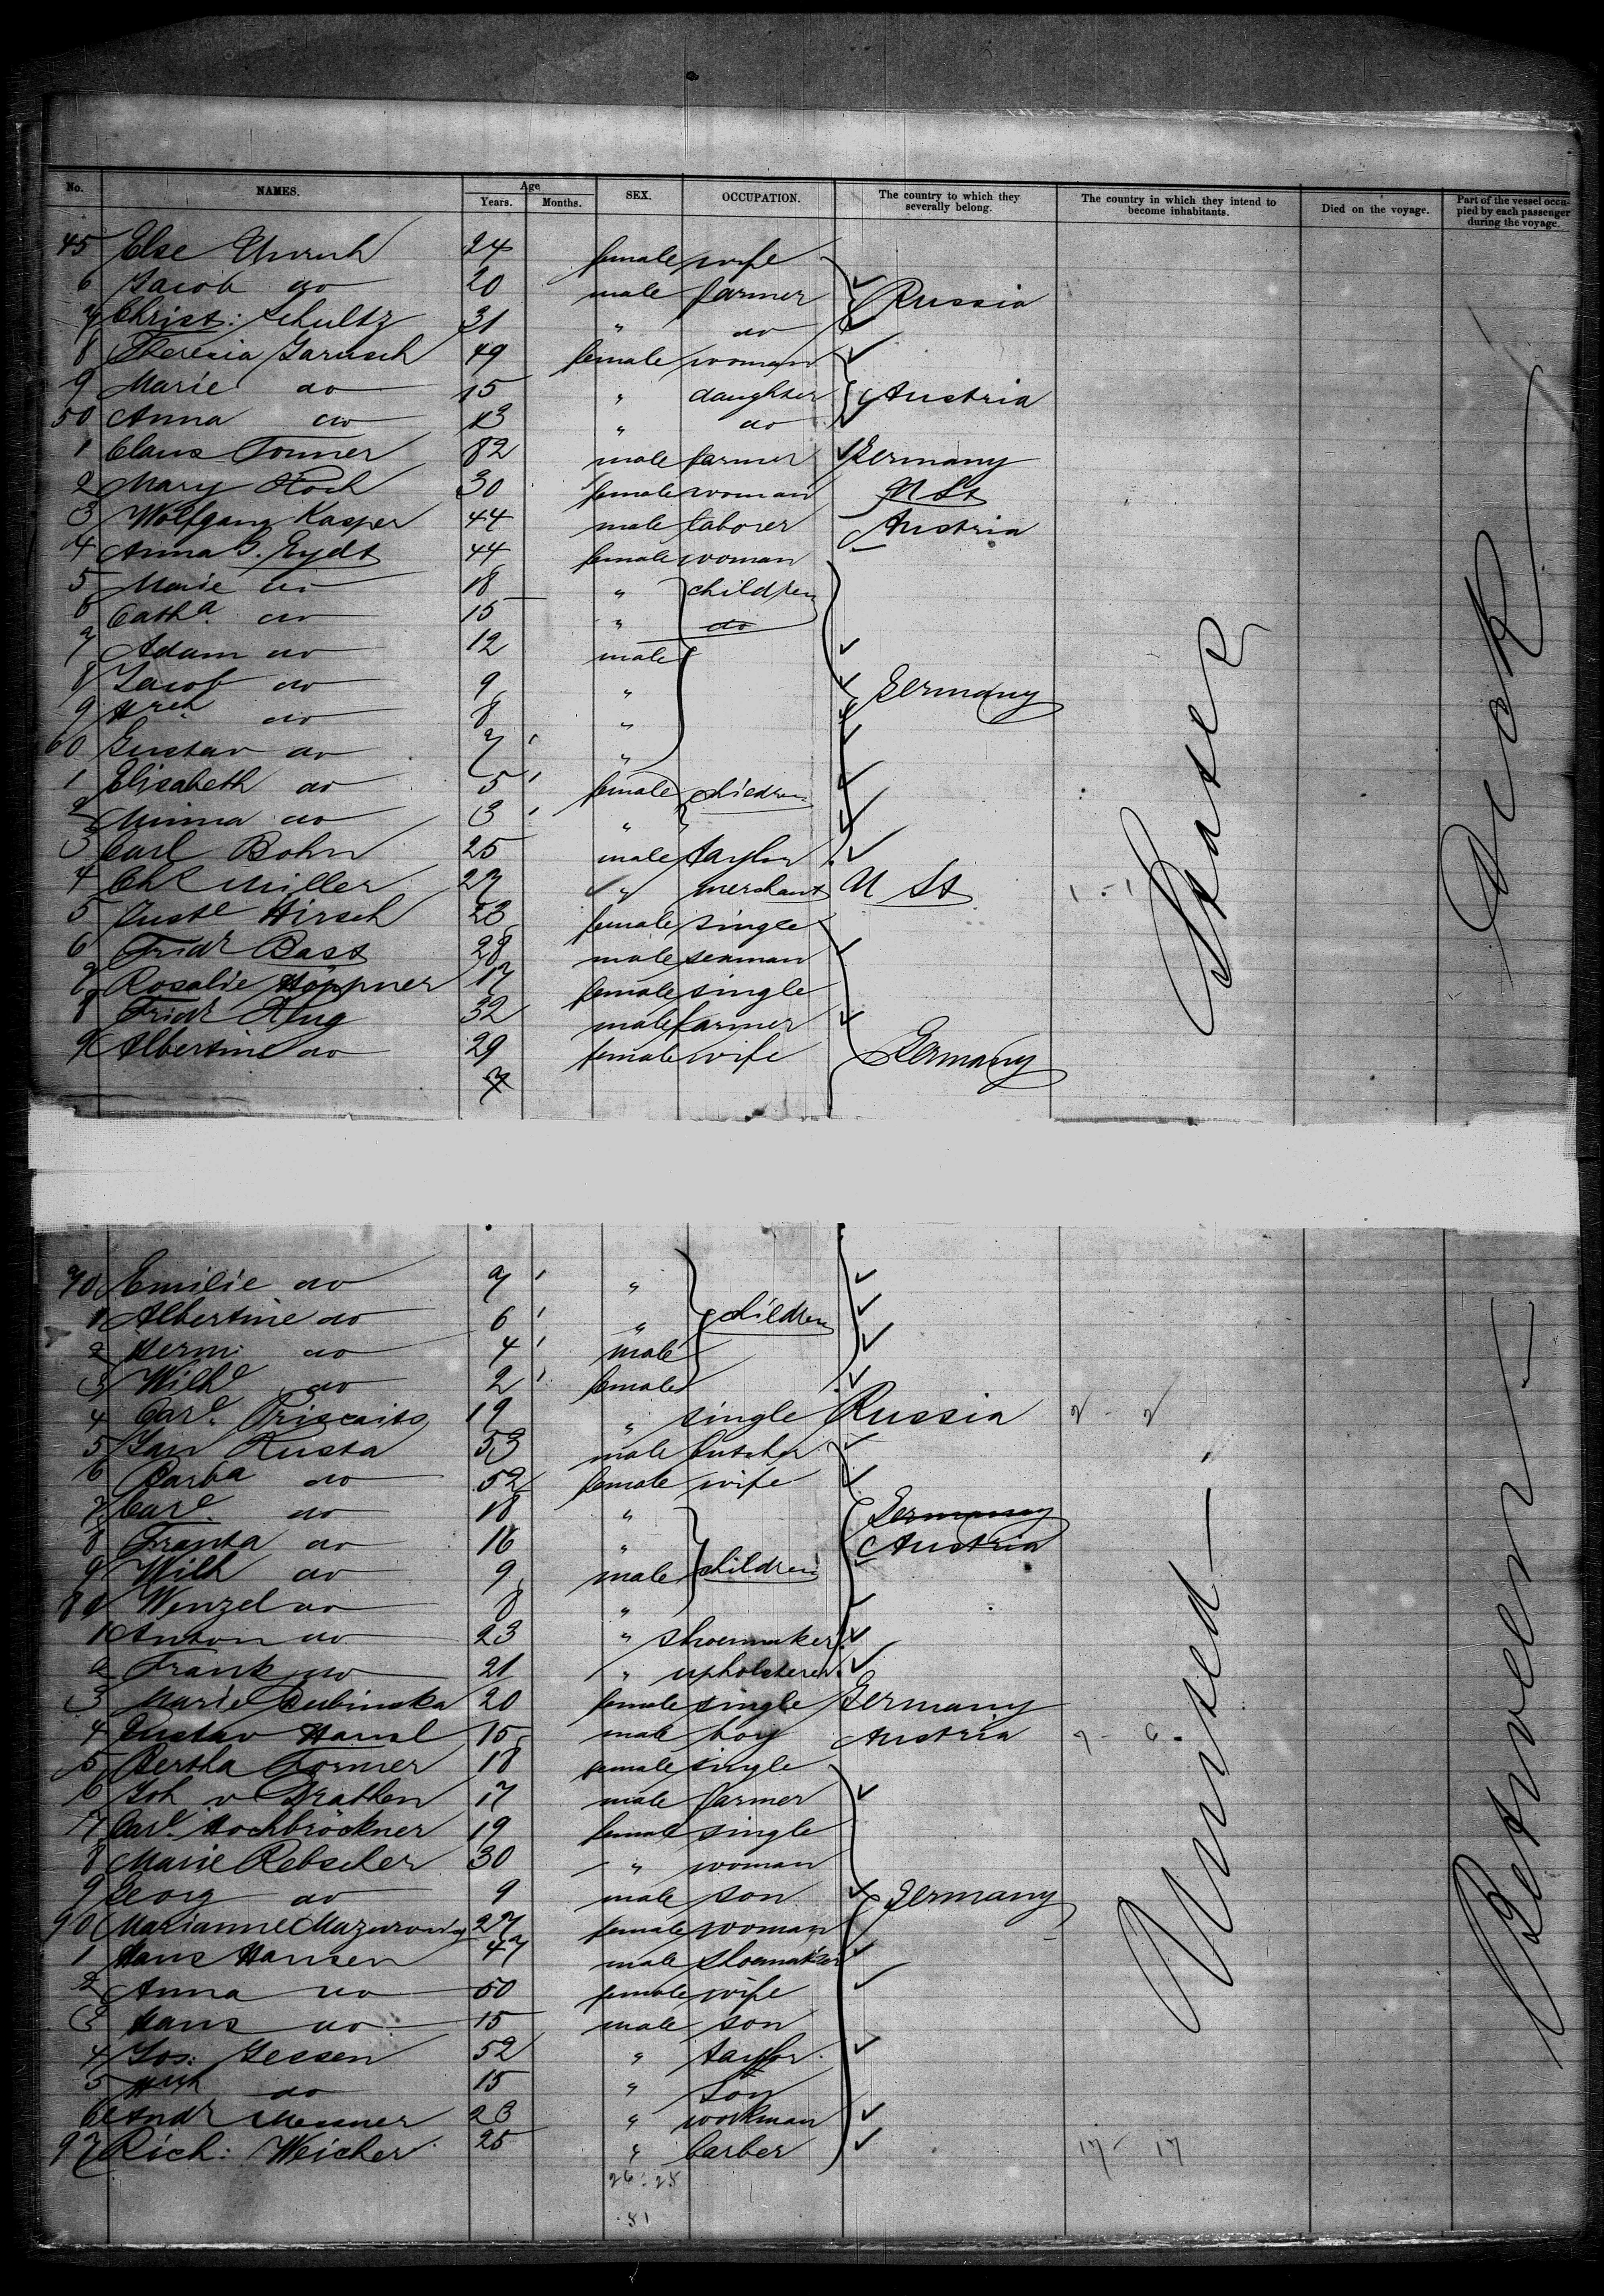 No. NAMES. Age Years. Months. SEX. OCCUPATION. The country to which they severally belong. The country in which they intend to become inhabitants. Died on the voyage. Part of the vessel occupied by each passenger during the voyage.
45 Else 24 female wife
6 Jacob do 20 male farmer Russia
7 Christ: Schultz 31 " do
8 Theresia Jarusch 49 female woman
9 Marie do 15 " daughter Austria
50 Anna do 13 " do
1 Claus Tonner 82 male farmer Germany
2 Mary Koch 30 female woman U St
3 Wolfgang Kasper 44 male laborer Austria
4 Anna G. Eydt 44 female woman
5 Marie do 18 " children
6 Catha. do 15 " do
7 Adam do 12 male
8 Jacob do 9 " Germany
9 Hrch do 8 "
60 Gustav do 7 "
1 Elisabeth do 5 female children
2 Minna do 3 " "
3 Carl Bohn 25 male taylor
4 Chr Miller 27 " merchant U St
5 Auste Hirsch 23 female single
6 Fridr Bast 28 male seaman
7 Rosalie Höppner 17 female single
8 Fridr Klug 32 male farmer
9 Albertine do 29 female wife Germany
7
70 Emilie do 7 "
1 Albertine do 6 " children
2 Herm: do 4 male
3 Wilhe do 2 female
4 Care. 19 " single Russia
5 Jan Kusta 53 male butcher
6 Barba do 52 female wife
7 Care. do 18 " Germany
8 Franta do 16 " Austria
9 Wilh do 9 male children
80 Wenzel do 8 "
1 Anton do 23 " shoemaker
2 Frank do 21 " upholsterer
3 Marie Dubinska 20 female single Germany
4 Gustav Hansl 15 male boy Austria
5 Bertha Tormer 18 female single
6 Joh v Drathen 17 male farmer
7 Care. Hochbröckner 19 female single
8 Marie Rebscher 30 " woman
9 Georg do 9 male son Germany
90 Marianne 27 female woman
1 Hans Hansen 47 male shoemaker
2 Anna do 50 female wife
3 Hans do 15 male son
4 Jos: Jessen 52 " taylor
5 Hch do 15 " son
6 Andr Messner 23 " workman
97 Rich: Weicher 25 " barber
17 - 17
26 : 25
51
United States
Between Deck